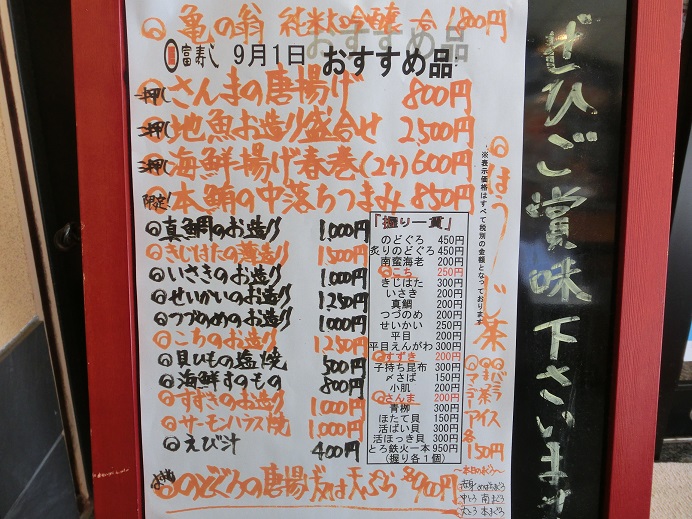 ◎亀の翁 純米大吟醸 一合 1,800円
富寿し 9月1日 おすすめ品
一押し さんまの唐揚げ 800円
一押し 地魚お造り盛合せ 2,500円
一押し 海鮮揚げ春巻(2ヶ) 600円
限定! 本鮪の中落ちつまみ 850円
◎真鯛のお造り 1,000円
◎きじはたの薄造り 1,500円
◎いさきのお造り 1,000円
◎せいかいのお造り 1,250円
◎つづのめのお造り 1,000円
◎こちのお造り 1,250円
◎貝ひもの塩焼 500円
◎海鮮すのもの 800円
◎すずきのお造り 1,000円
◎サーモンハラス焼 1,000円
◎えび汁 400円
『握り一貫』
のどぐろ 450円
炙りのどぐろ 450円
南蛮海老 200円
◎こち 250円
きじはた 300円
いさき 200円
真鯛 200円
つづのめ 200円
せいかい 250円
平目 200円
平目えんがわ 300円
◎すずき 200円
子持ち昆布 300円
〆さば 150円
小肌 200円
◎さんま 200円
青柳 300円
ほたて貝 150円
活ばい貝 300円
活ほっき貝 300円
とろ鉄火一本 950円
(握り各1個)
※表示価格はすべて税別の金額となっております
◎バラ
◎ごま
アイス
各150円
◎のどぐろの唐揚げ又は天ぷら 各900円
〜本日のまぐろ〜
ぜひご賞味下さいませ